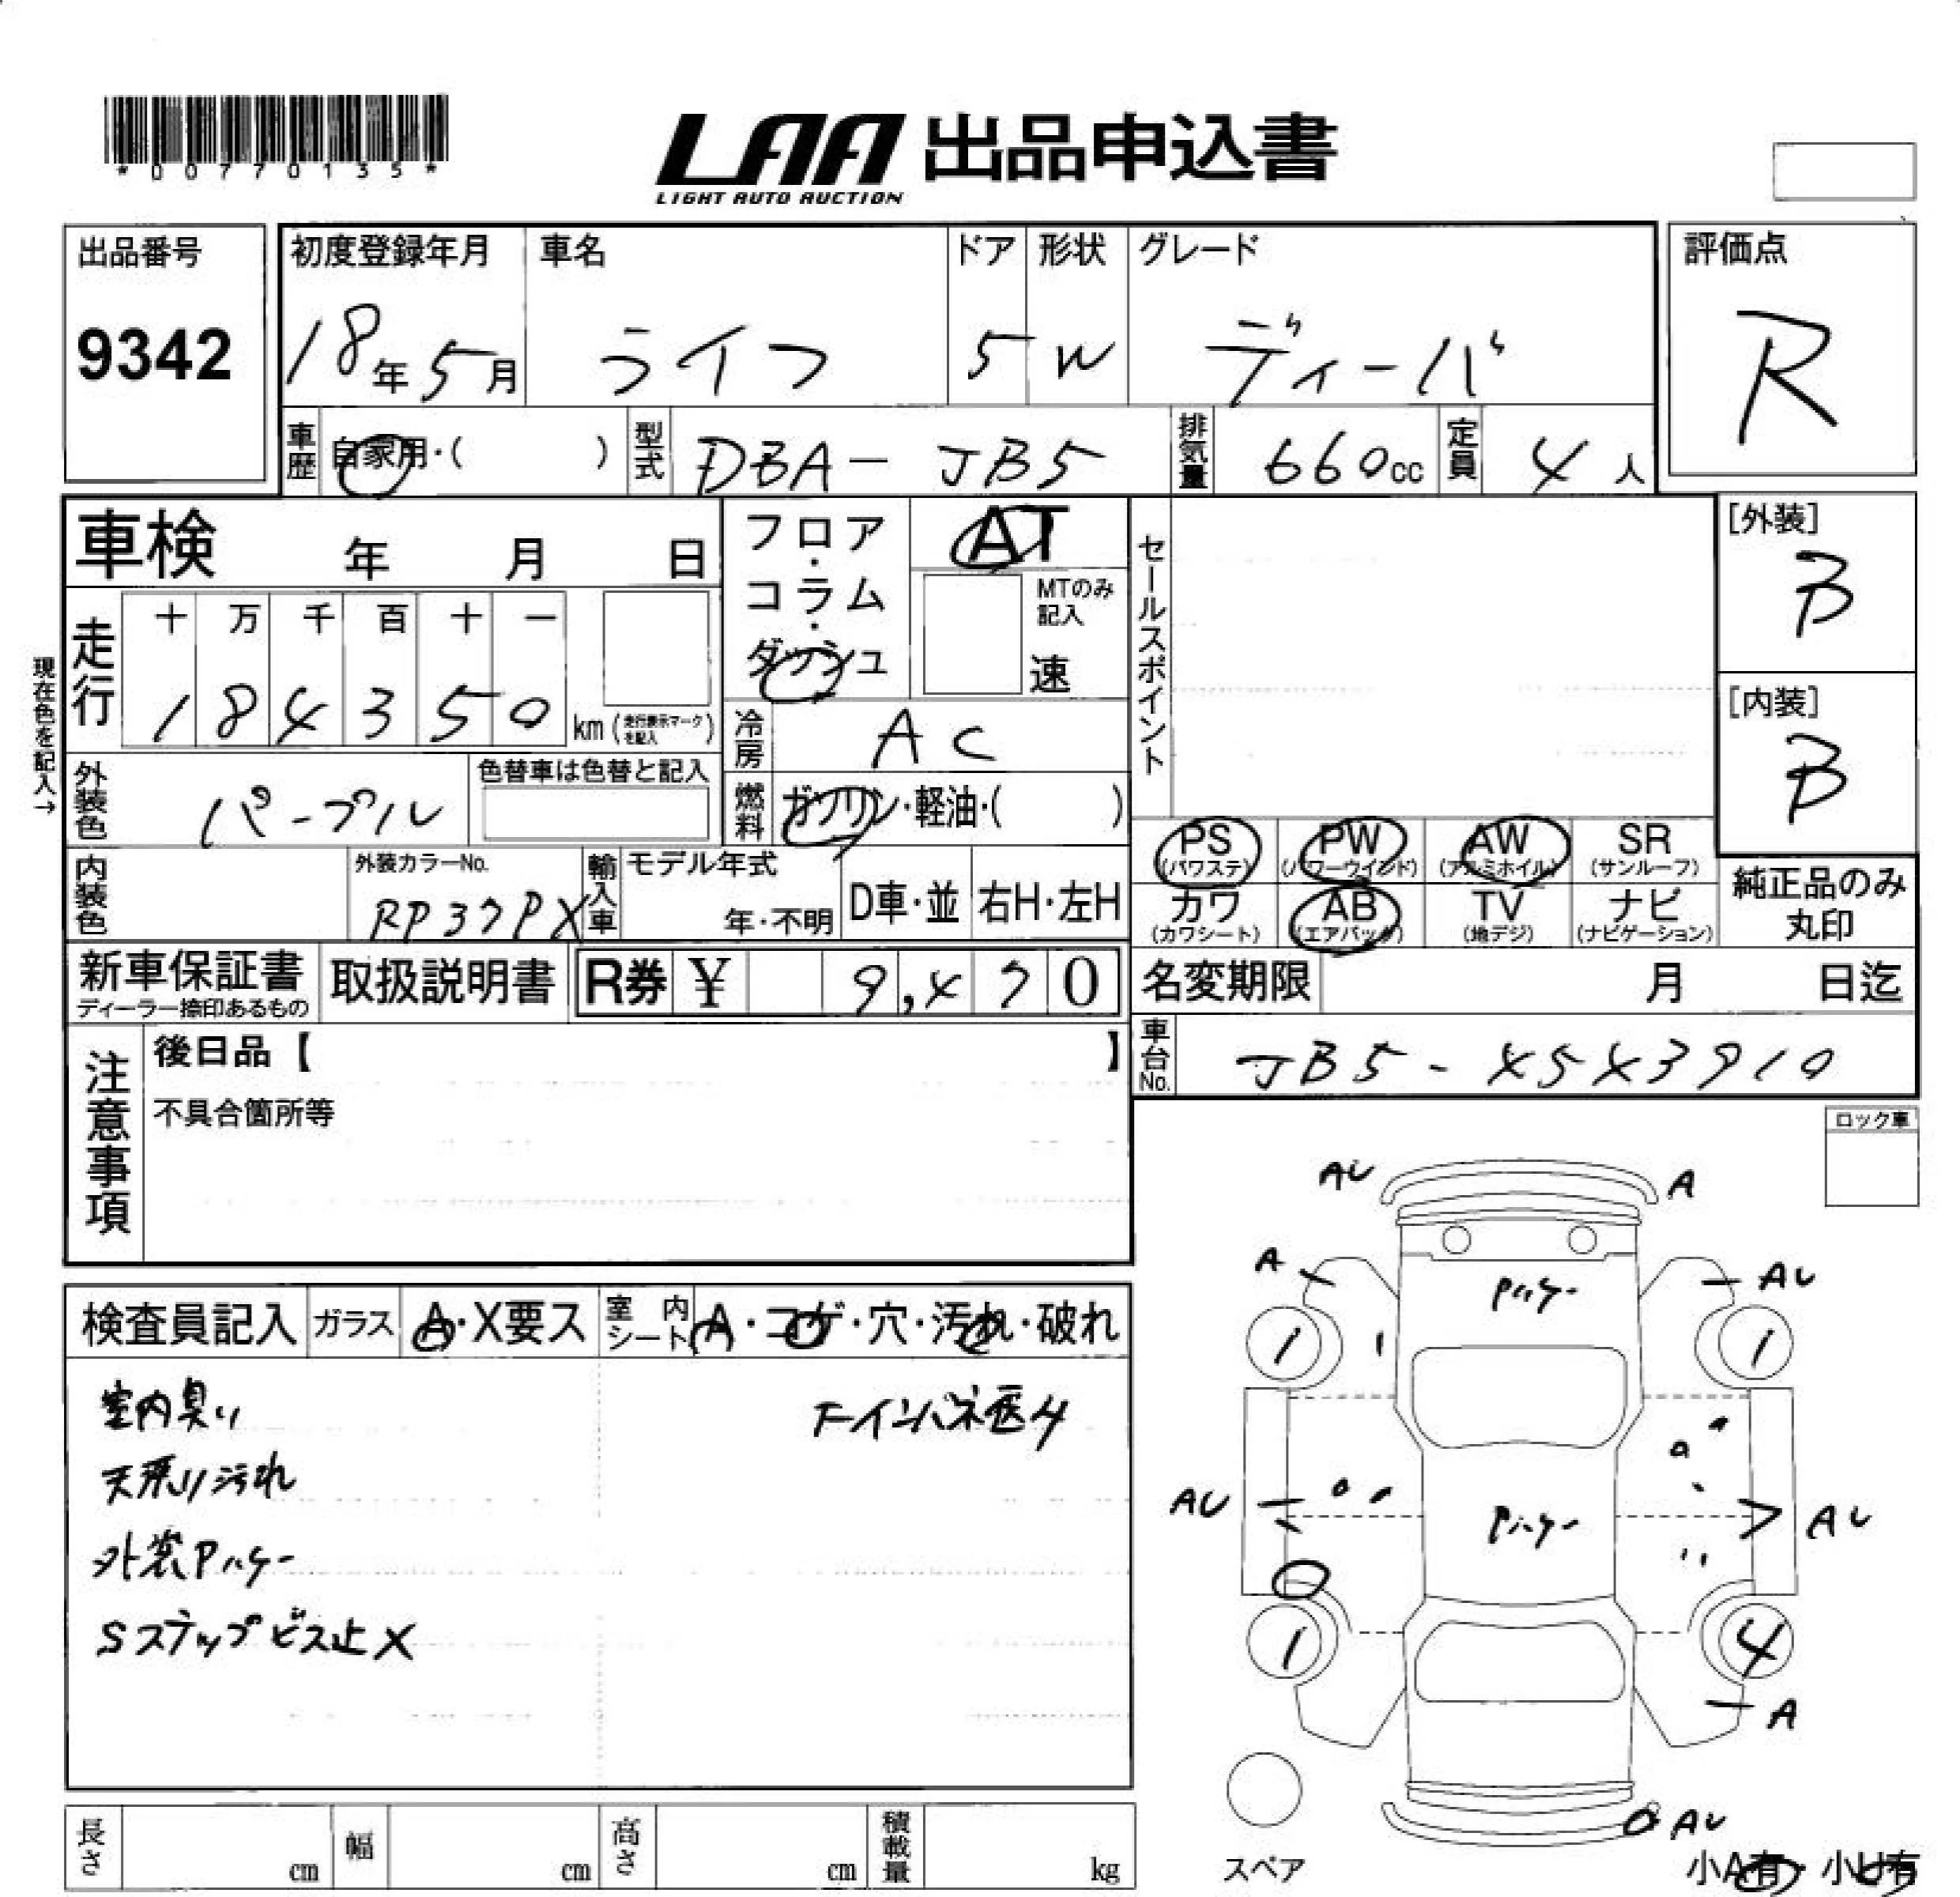 *00770135*
LAA 出品申込書
LIGHT AUTO AUCTION
出品番号
9342
初度登録年月
18年5月
車名
ライフ
ドア
5
形状
W
グレード
ディーバ
評価点
R
車歴 自家用・( )
型式 DBA-JB5
排気量 660cc
定員 4人
車検 年 月 日
フロア・コラム・ダッシュ
AT
MTのみ記入
速
セールスポイント
[外装]
B
[内装]
B
現在色を記入→
走行
十 万 千 百 十 一
1 8 4 3 5 0 km (走行表示マークを記入)
冷房 AC
外装色 パープル
色替車は色替と記入
燃料 ガソリン・軽油・( )
PS (パワステ)
PW (パワーウインド)
AW (アルミホイル)
SR (サンルーフ)
カワ (カワシート)
AB (エアバック)
TV (地デジ)
ナビ (ナビゲーション)
純正品のみ丸印
内装色
外装カラーNo.
RP37PX
輸入車
モデル年式
年・不明
D車・並
右H・左H
新車保証書
ディーラー捺印あるもの
取扱説明書
R券 ¥ 9,470
名変期限 月 日迄
車台No. JB5-4543910
注意事項
後日品【 】
不具合箇所等
ロック車
検査員記入
ガラス A・X要ス
室内シート A・コゲ・穴・汚れ・破れ
室内臭い
天張り汚れ
外装Pハゲー
Sステップビス止X
AU
A
A
AU
Pハゲー
1
1
AU
AU
Pハゲー
1
4
A
AU
スペア
小A有 小U有
長さ cm
幅 cm
高さ cm
積載量 kg